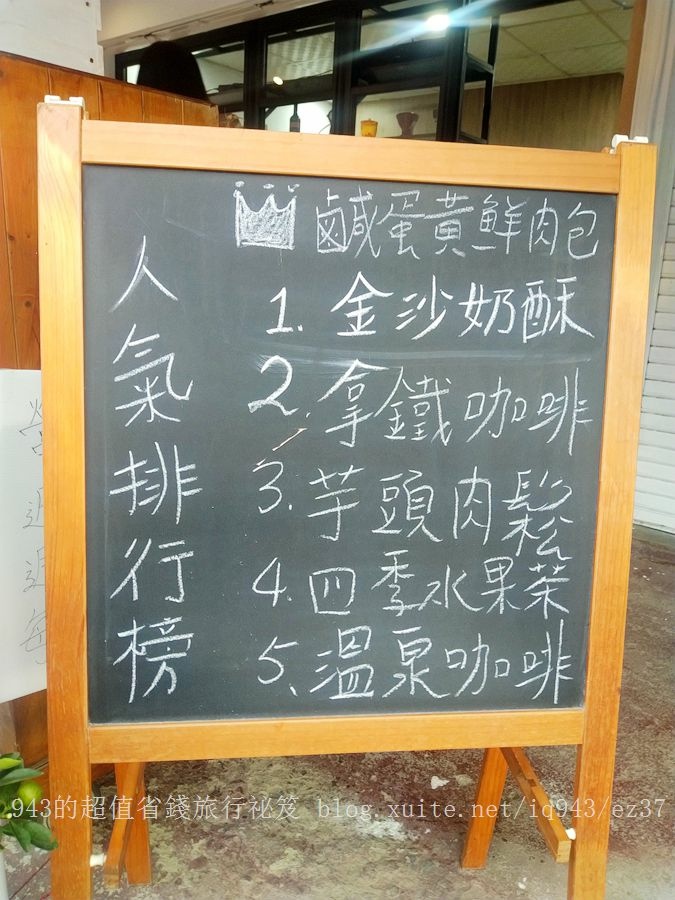 人氣排行榜
鹹蛋黃鮮肉包
1. 金沙奶酥
2. 拿鐵咖啡
3. 芋頭肉鬆
4. 四季水果茶
5、溫泉咖啡
943的超值省錢旅行祕笈 blog.xuite.net/iq943/ez37